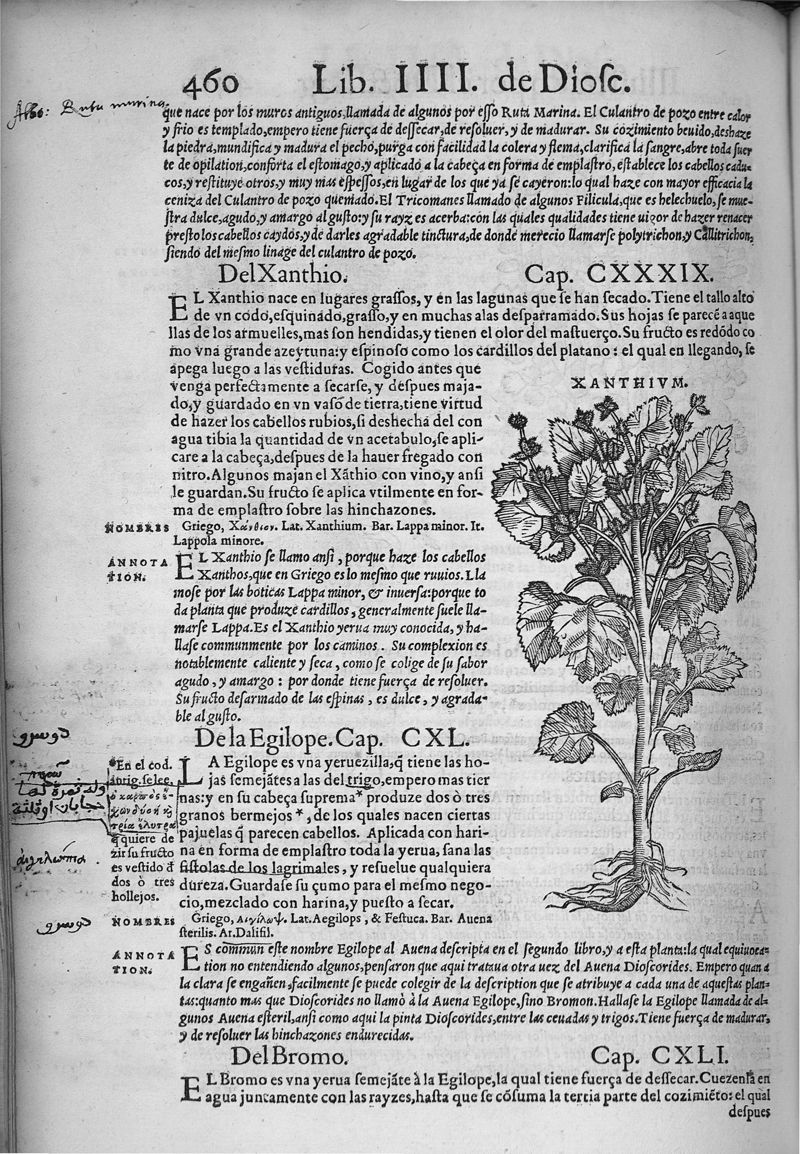 460 Lib. IIII. de Diosc.
Ruta marina
que nace por los muros antiguos, llamada de algunos por esso Ruta Marina. El Culantro de pozo entre calor
y frio es templado, empero tiene fuerça de dessecar, de resoluer, y de madurar. Su cozimiento beuido, deshaze
la piedra, mundifica y madura el pecho, purga con facilidad la colera y flema, clarifica la sangre, abre toda suer
te de opilation, conforta el estomago, y aplicado à la cabeça en forma de emplastro, establece los cabellos cadu-
cos, y restituye otros, y muy mas espessos, en lugar de los que ya se cayeron: lo qual haze con mayor efficacia la
ceniza del Culantro de pozo quemado. El Tricomanes llamado de algunos Filicula, que es helechuelo, se mue-
stra dulce, agudo, y amargo al gusto: y su rayz es acerba: con las quales qualidades tiene uigor de hazer renacer
presto los cabellos caydos, y de darles agradable tinctura, de donde merecio llamarse polytrichon, y Callitrichon,
siendo del mesmo linage del culantro de pozo.
Del Xanthio. Cap. CXXXIX.
EL Xanthio nace en lugares grassos, y en las lagunas que se han secado. Tiene el tallo alto
de vn codo, esquinado, grasso, y en muchas alas desparramado. Sus hojas se parecē a aque
llas de los armuelles, mas son hendidas, y tienen el olor del mastuerço. Su fructo es redōdo co
mo vna grande azeytuna: y espinoso como los cardillos del platano: el qual en llegando, se
apega luego a las vestiduras. Cogido antes que
venga perfectamente a secarse, y despues maja-
do, y guardado en vn vaso de tierra, tiene virtud
de hazer los cabellos rubios, si deshecha del con
agua tibia la quantidad de vn acetabulo, se apli-
care a la cabeça, despues de la hauer fregado con
nitro. Algunos majan el Xāthio con vino, y ansi
le guardan. Su fructo se aplica vtilmente en for-
ma de emplastro sobre las hinchazones.
XANTHIVM.
NOMBRES Griego, Χάνθιον. Lat. Xanthium. Bar. Lappa minor. It.
Lappola minore.
ANNOTA
TION.
EL Xanthio se llamo ansi, porque haze los cabellos
Xanthos, que en Griego es lo mesmo que ruuios. Lla
mose por las boticas Lappa minor, & inuersa: porque to
da planta que produze cardillos, generalmente suele lla-
marse Lappa. Es el Xanthio yerua muy conocida, y ha-
llase communmente por los caminos. Su complexion es
notablemente caliente y seca, como se colige de su sabor
agudo, y amargo: por donde tiene fuerça de resoluer.
Su fructo desarmado de las espinas, es dulce, y agrada-
ble al gusto.
De la Egilope. Cap. CXL.
LA Egilope es vna yeruezilla, q̄ tiene las ho-
jas semejātes a las del trigo, empero mas tier
nas: y en su cabeça suprema* produze dos ò tres
granos bermejos*, de los quales nacen ciertas
pajuelas q̄ parecen cabellos. Aplicada con hari-
na en forma de emplastro toda la yerua, sana las
fistolas de los lagrimales, y resuelue qualquiera
dureza. Guardase su çumo para el mesmo nego-
cio, mezclado con harina, y puesto a secar.
*En el cod.
antig. se lee,
q̄ quiere de
zir su fructo
es vestido d̄
dos ò tres
hollejos.
NOMBRES Griego, Αἰγίλωψ. Lat. Aegilops, & Festuca. Bar. Auena
sterilis. Ar. Dalisil.
ANNOTA
TION.
ES commun este nombre Egilope al Auena descripta en el segundo libro, y a esta planta: la qual equiuoca-
tion no entendiendo algunos, pensaron que aqui trataua otra uez del Auena Dioscorides. Empero quan a
la clara se engañen, facilmente se puede colegir de la description que se atribuye a cada una de aquestas plan-
tas: quanto mas que Dioscorides no llamò à la Auena Egilope, sino Bromon. Hallase la Egilope llamada de al-
gunos Auena esteril, ansi como aqui la pinta Dioscorides, entre las ceuadas y trigos. Tiene fuerça de madurar,
y de resoluer las hinchazones endurecidas.
Del Bromo. Cap. CXLI.
EL Bromo es vna yerua semejāte à la Egilope, la qual tiene fuerça de dessecar. Cuezenla en
agua juncamente con las rayzes, hasta que se cōsuma la tertia parte del cozimiēto: el qual
despues